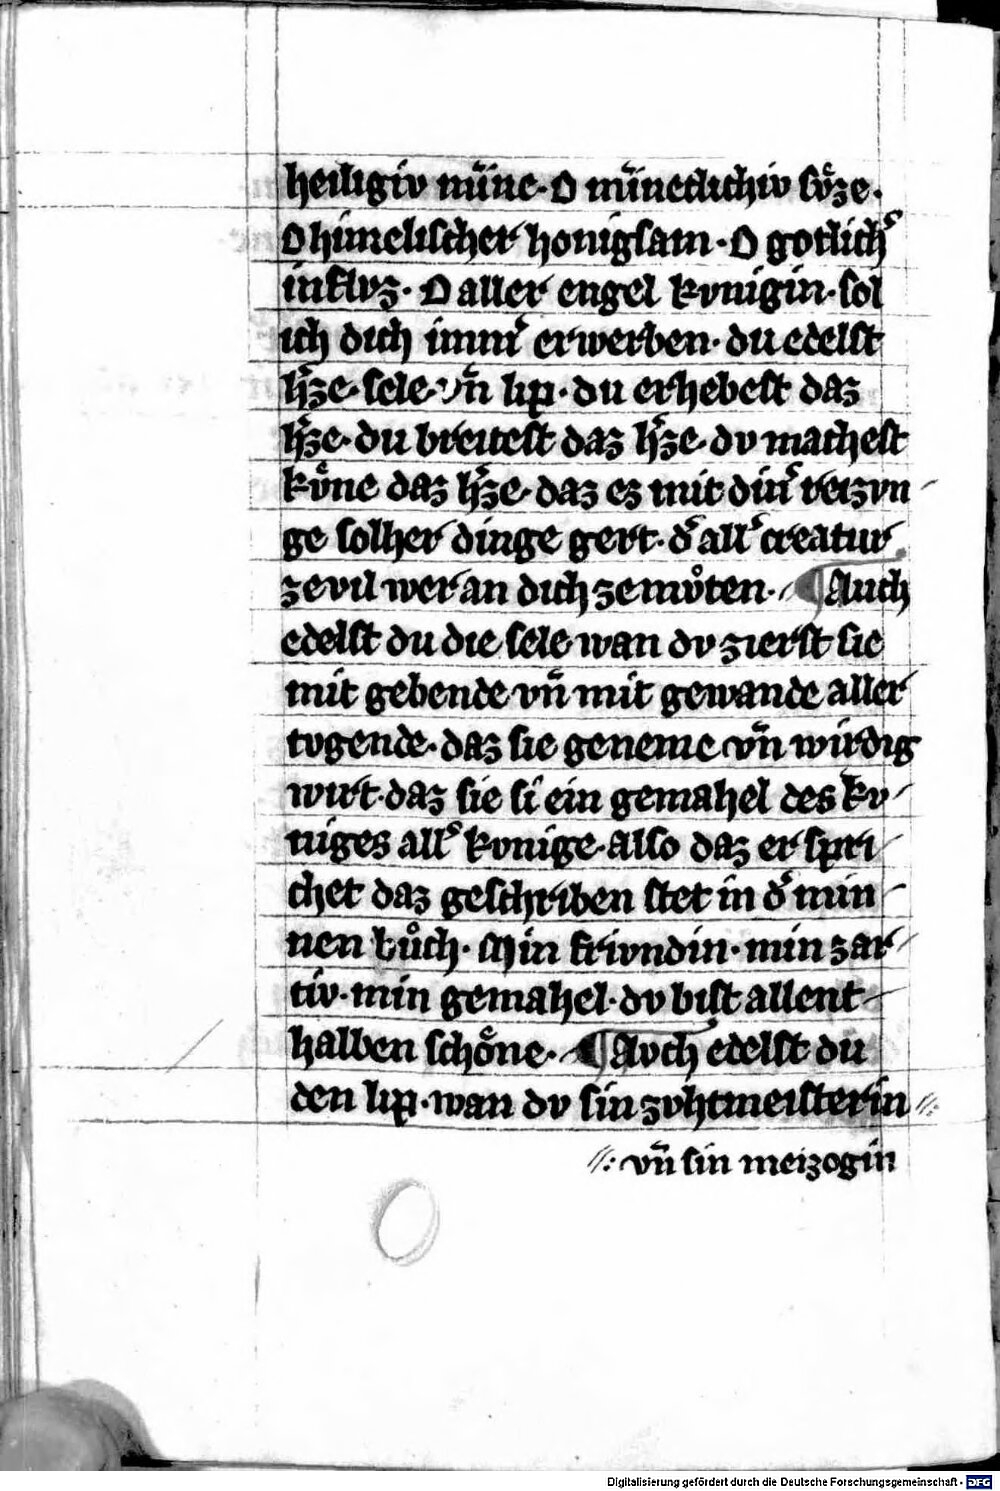 heiligiv miͤne· O miͤneclichiv svͤze·
O himelischer honigsam· O gotlich͛
influz· O aller engel kvnigin· sol
ich dich imm͛ erwerben· du edelst
h͛ze· sele· vn̄ lip· du erhebest daz
h͛ze· du breitest daz h͛ze· dv machest
kvͤne daz h͛ze· daz ez mit din͛ reizvn
ge solher dinge gert· d͛ all͛ creatur
ze vil wer an dich ze mvͦten· ¶ Auch
edelst du die sele wan dv zierst sie
mit gebende vn̄ mit gewande aller
tvgende· daz sie geneme vn̄ wirdig
wirt· daz sie si ein gemahel des kv
niges all͛ kvnige· also daz er spri
chet daz geschriben stet in d͛ min
nen bvͦch· Min frivndin· min zar
tiv· min gemahel· dv bist allent
halben schoͤne· ¶ Avch edelst du
den lip· wan dv sin zvhtmeisterin //:
//: vn̄ sin meizogin
Digitalisierung gefördert durch die Deutsche Forschungsgemeinschaft - DFG